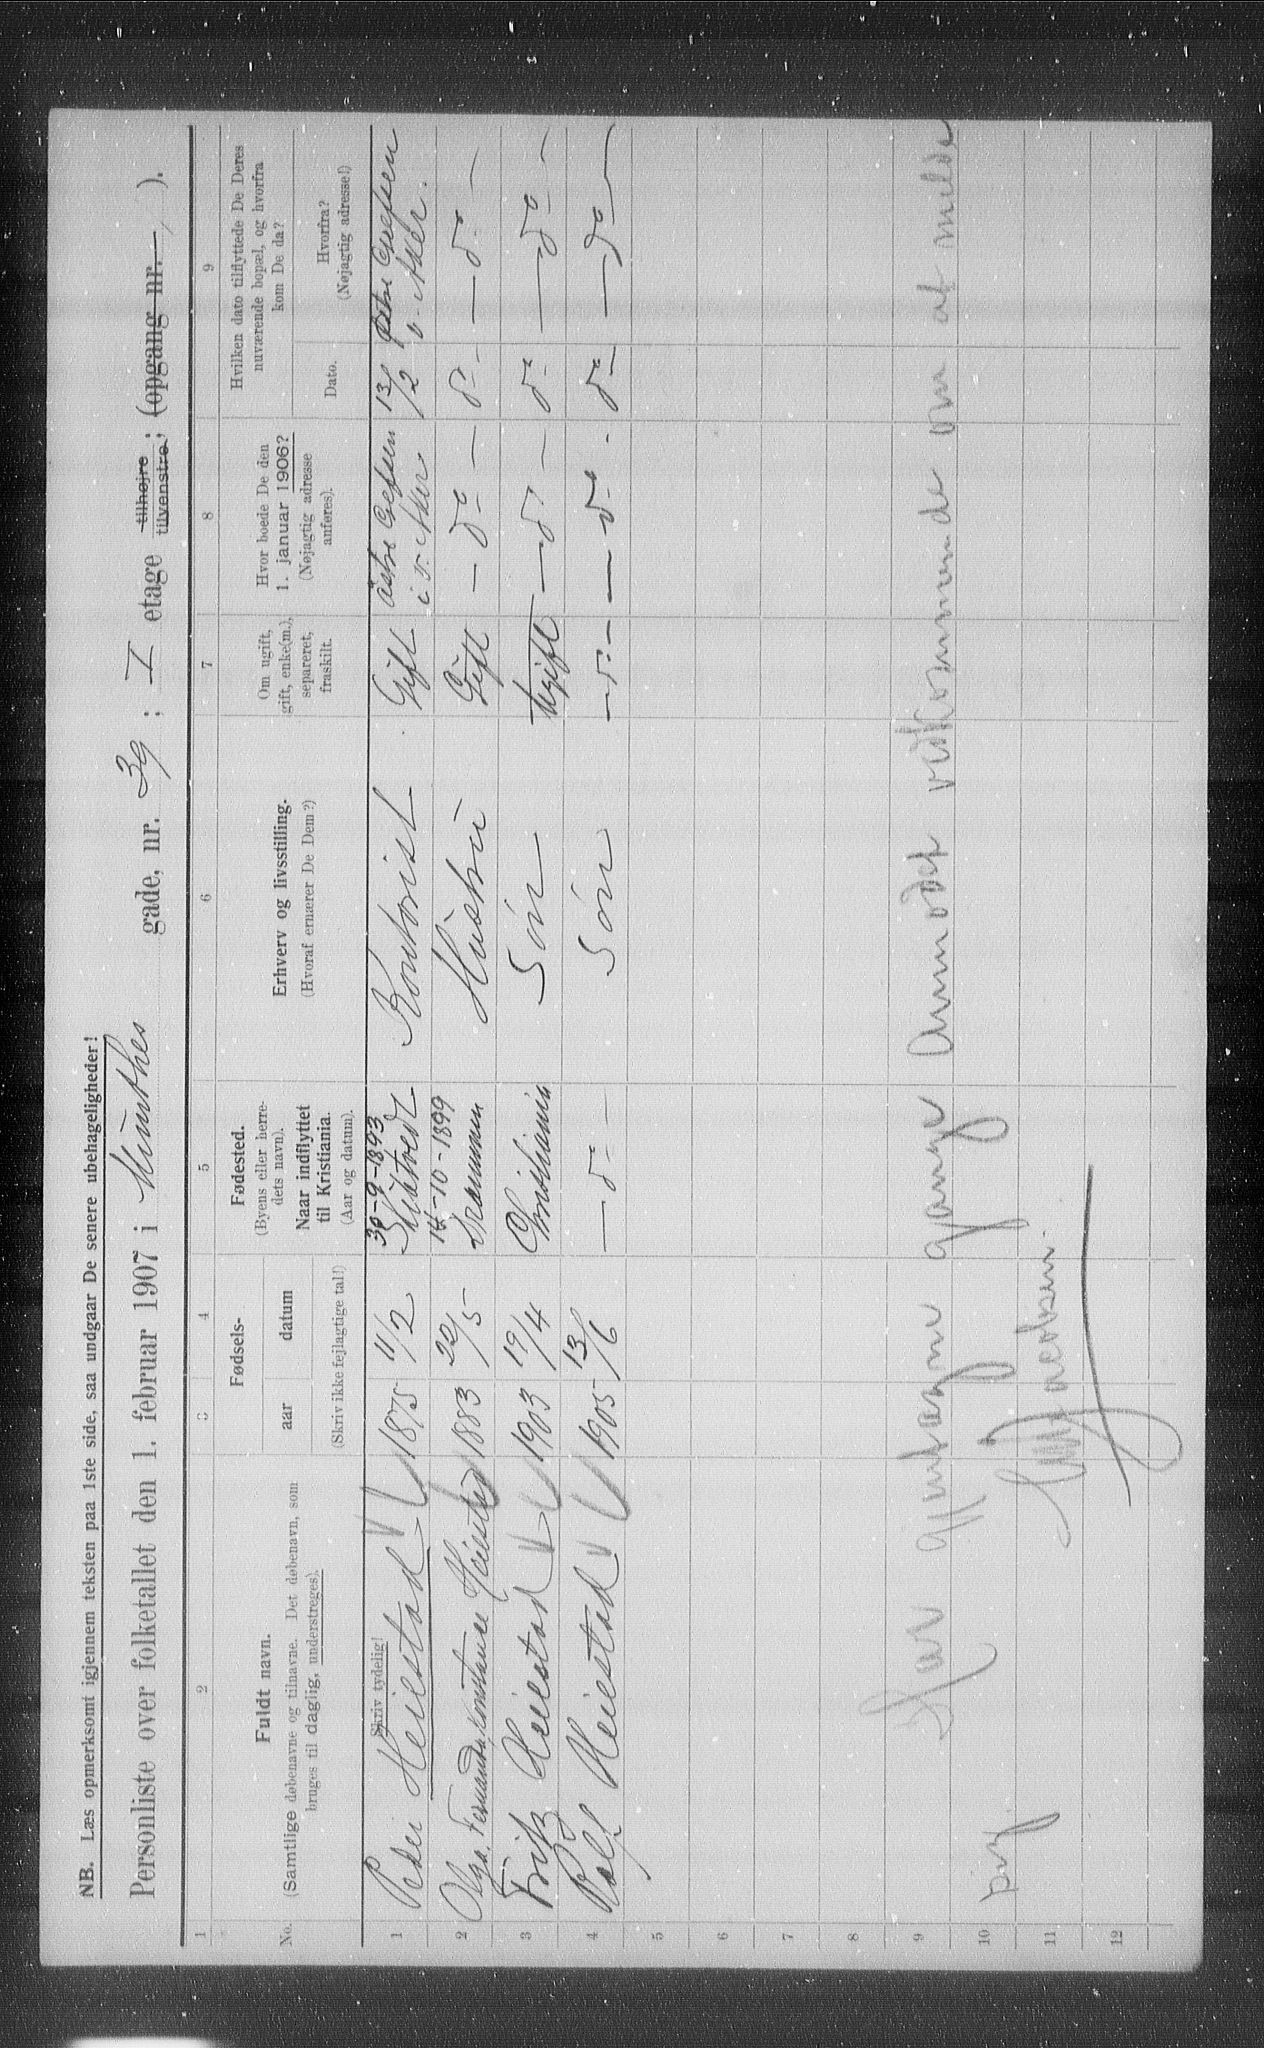 NB. Læs opmerksomt igjennem teksten paa 1ste side, saa undgaar De senere ubehageligheder!
Personliste over folketallet den 1. februar 1907 i Munthes gade, nr. 39 ; I etage tilhøjre tilvenstre; (opgang nr. — ).
1 2 3 4 5 6 7 8 9
No.
Fuldt navn.
(Samtlige døbenavne og tilnavne. Det døbenavn, som
bruges til daglig, understreges).
Skriv tydelig!
Fødsels-
aar datum
(Skriv ikke fejlagtige tal!)
Fødested.
(Byens eller herre-
dets navn).
Naar indflyttet
til Kristiania.
(Aar og datum).
Erhverv og livsstilling.
(Hvoraf ernærer De Dem?)
Om ugift,
gift, enke(m.),
separeret,
fraskilt.
Hvor boede De den
1. januar 1906?
(Nøjagtig adresse
anføres).
Hvilken dato tilflyttede De Deres
nuværende bopæl, og hvorfra
kom De da?
Dato.
Hvorfra?
(Nøjagtig adresse!)
30-9-1893
1 Peder Heiestad 1875 11/2 Skiptvedt Kontorist Gift østre Grefsen i v. Aker 13/2 østre Grefsen v. Aker.
14-10-1899
2 Olga Fernanda Konstance Heiestad 1883 22/5 Drammen Hustru Gift — do — do — — do —
3 Fritz Heiestad 1903 19/4 Christiania Søn Ugift — do — do — do —
4 Rolf Heiestad 1905 13/6 — do — Søn — do — — do — do — do —
5
6
7
8
9 Har gjentagne gange anmodet vedkommende om at melde
10
11 Jacobsen.
12